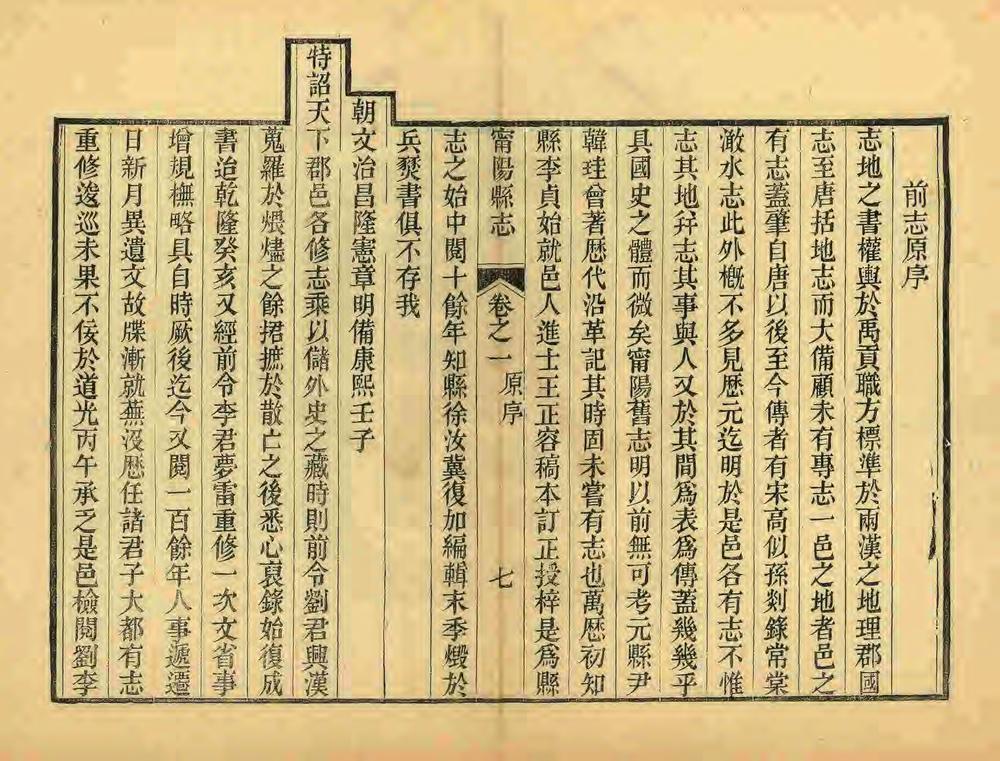 前志原序
志地之書權輿於禹貢職方標準於兩漢之地理郡國
志至唐括地志而大備顧未有專志一邑之地者邑之
有志蓋肇自唐以後至今傳者有宋高似孫剡錄常棠
澉水志此外概不多見歴元迄明於是邑各有志不惟
志其地幷志其事與人又於其間爲表爲傳蓋幾幾乎
具國史之體而微矣甯陽舊志明以前無可考元縣尹
韓珪曾著歴代沿革記其時固未嘗有志也萬歴初知
縣李貞始就邑人進士王正容稿本訂正授梓是爲縣
甯陽縣志 卷之一 原序 七
志之始中閱十餘年知縣徐汝冀復加編輯末季燬於
兵燹書俱不存我
朝文治昌隆憲章明備康熙壬子
特詔天下郡邑各修志乘以儲外史之藏時則前令劉君興漢
蒐羅於煨燼之餘捃摭於散亡之後悉心裒錄始復成
書迨乾隆癸亥又經前令李君夢雷重修一次文省事
增規橅略具自時厥後迄今又閱一百餘年人事遞遷
日新月異遺文故牒漸就蕪沒歴任諸君子大都有志
重修逡巡未果不佞於道光丙午承乏是邑檢閱劉李